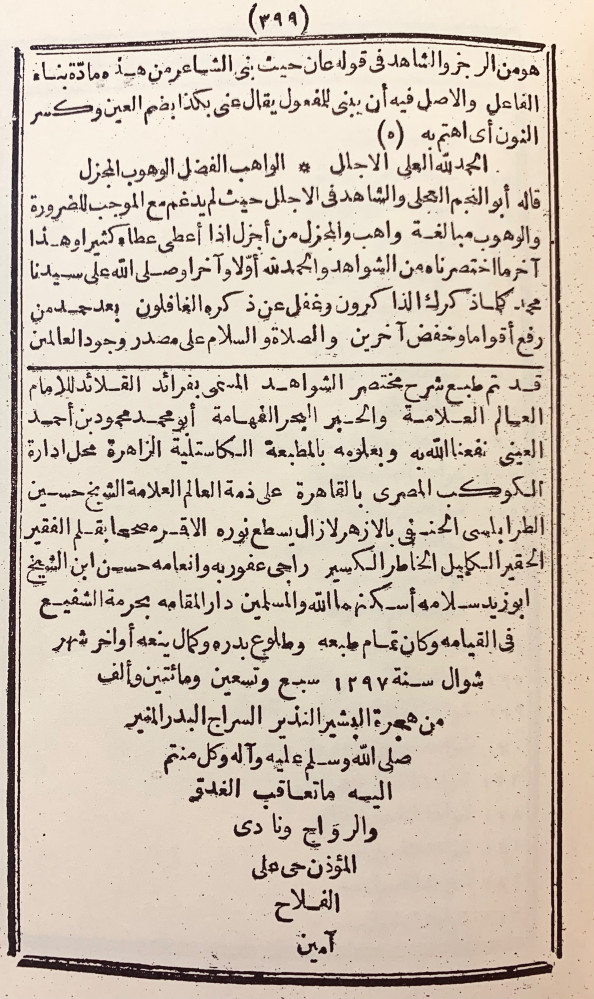 (٣٩٩)
هو من الرجز والشاهد فى قوله عان حيث بنى الشاعر من هذه مادة بناء
الفاعل والاصل فيه أن يبنى للمفعول يقال عنى بكذا بضم العين وكسر
النون أى اهتم به (٥)
الحمد لله العلى الاجلل * الواهب الفضل الوهوب المجزل
قاله أبو النجم العجلى والشاهد فى الاجلل حيث لم يدغم مع الموجب للضرورة
والوهوب مبالغة واهب والمجزل من أجزل اذا أعطى عطاء كثيرا وهذا
آخر ما اختصرناه من الشواهد والحمد لله أولا وآخرا وصلى الله على سيدنا
محمد كلما ذكرك الذاكرون وغفل عن ذكره الغافلون بعد حمد من
رفع أقواما وخفض آخرين والصلاة والسلام على مصدر وجود العالمين
قد تم طبع شرح مختصر الشواهد المسمى بفرائد القلائد للامام
العالم العلامة والحبر البحر الفهامة أبو محمد محمود بن أحمد
العينى نفعنا الله به وبعلومه بالمطبعة الكاستلية الزاهرة محل ادارة
الكوكب المصرى بالقاهرة على ذمة العالم العلامة الشيخ حسين
الطرابلسى الحنفى بالازهر لازال يسطع نوره الاقمر مصححا بقلم الفقير
الحقير الكليل الخاطر الكسير راجى عفو ربه وانعامه حسن ابن الشيخ
ابو زيد سلامه أسكنهما الله والمسلمين دار المقامه بحرمة الشفيع
فى القيامه وكان تمام طبعه وطلوع بدره وكمال ينعه أواخر شهر
شوال سنة ١٢٩٧ سبع وتسعين ومائتين وألف
من هجرة البشير النذير السراج البدر المنير
صلى الله وسلم عليه وآله وكل منتم
اليه ما تعاقب الغدو
والرواح ونادى
المؤذن حى على
الفلاح
آمين